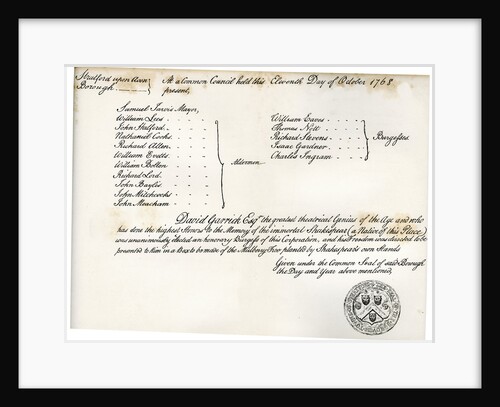 Stratford upon Avon
Borough
At a Common Council held this Eleventh Day of October 1768
present,
Samuel Jarvis Mayor,
William Lees
John
Nathanial Cooks
Richard Allen
William Evetts
William Bolton
Richard Lord
John Baylis
John Mitchcocks
John Meacham
Aldermen
William Eaves
Thomas Nott
Richard Stevens
Isaac Gardner
Charles Ingram
Burgesses
David Garrick Esqr. the greatest theatrical Genius of the Age and who
has done the highest Honor to the Memory of the immortal Shakespear (a Native of this Place)
was unanimously elected an honorary Burgess of this Corporation, and his Freedom was directed to be
presented to Him in a Box to be made of the Mulberry Tree planted by Shakspear's own Hands
Given under the Common Seal of said Borough
the Day and Year above mentioned.